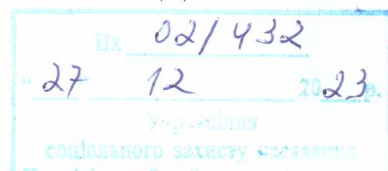 Вх 02/432
"27 12 2023 р.
Управління
соціального захисту населення